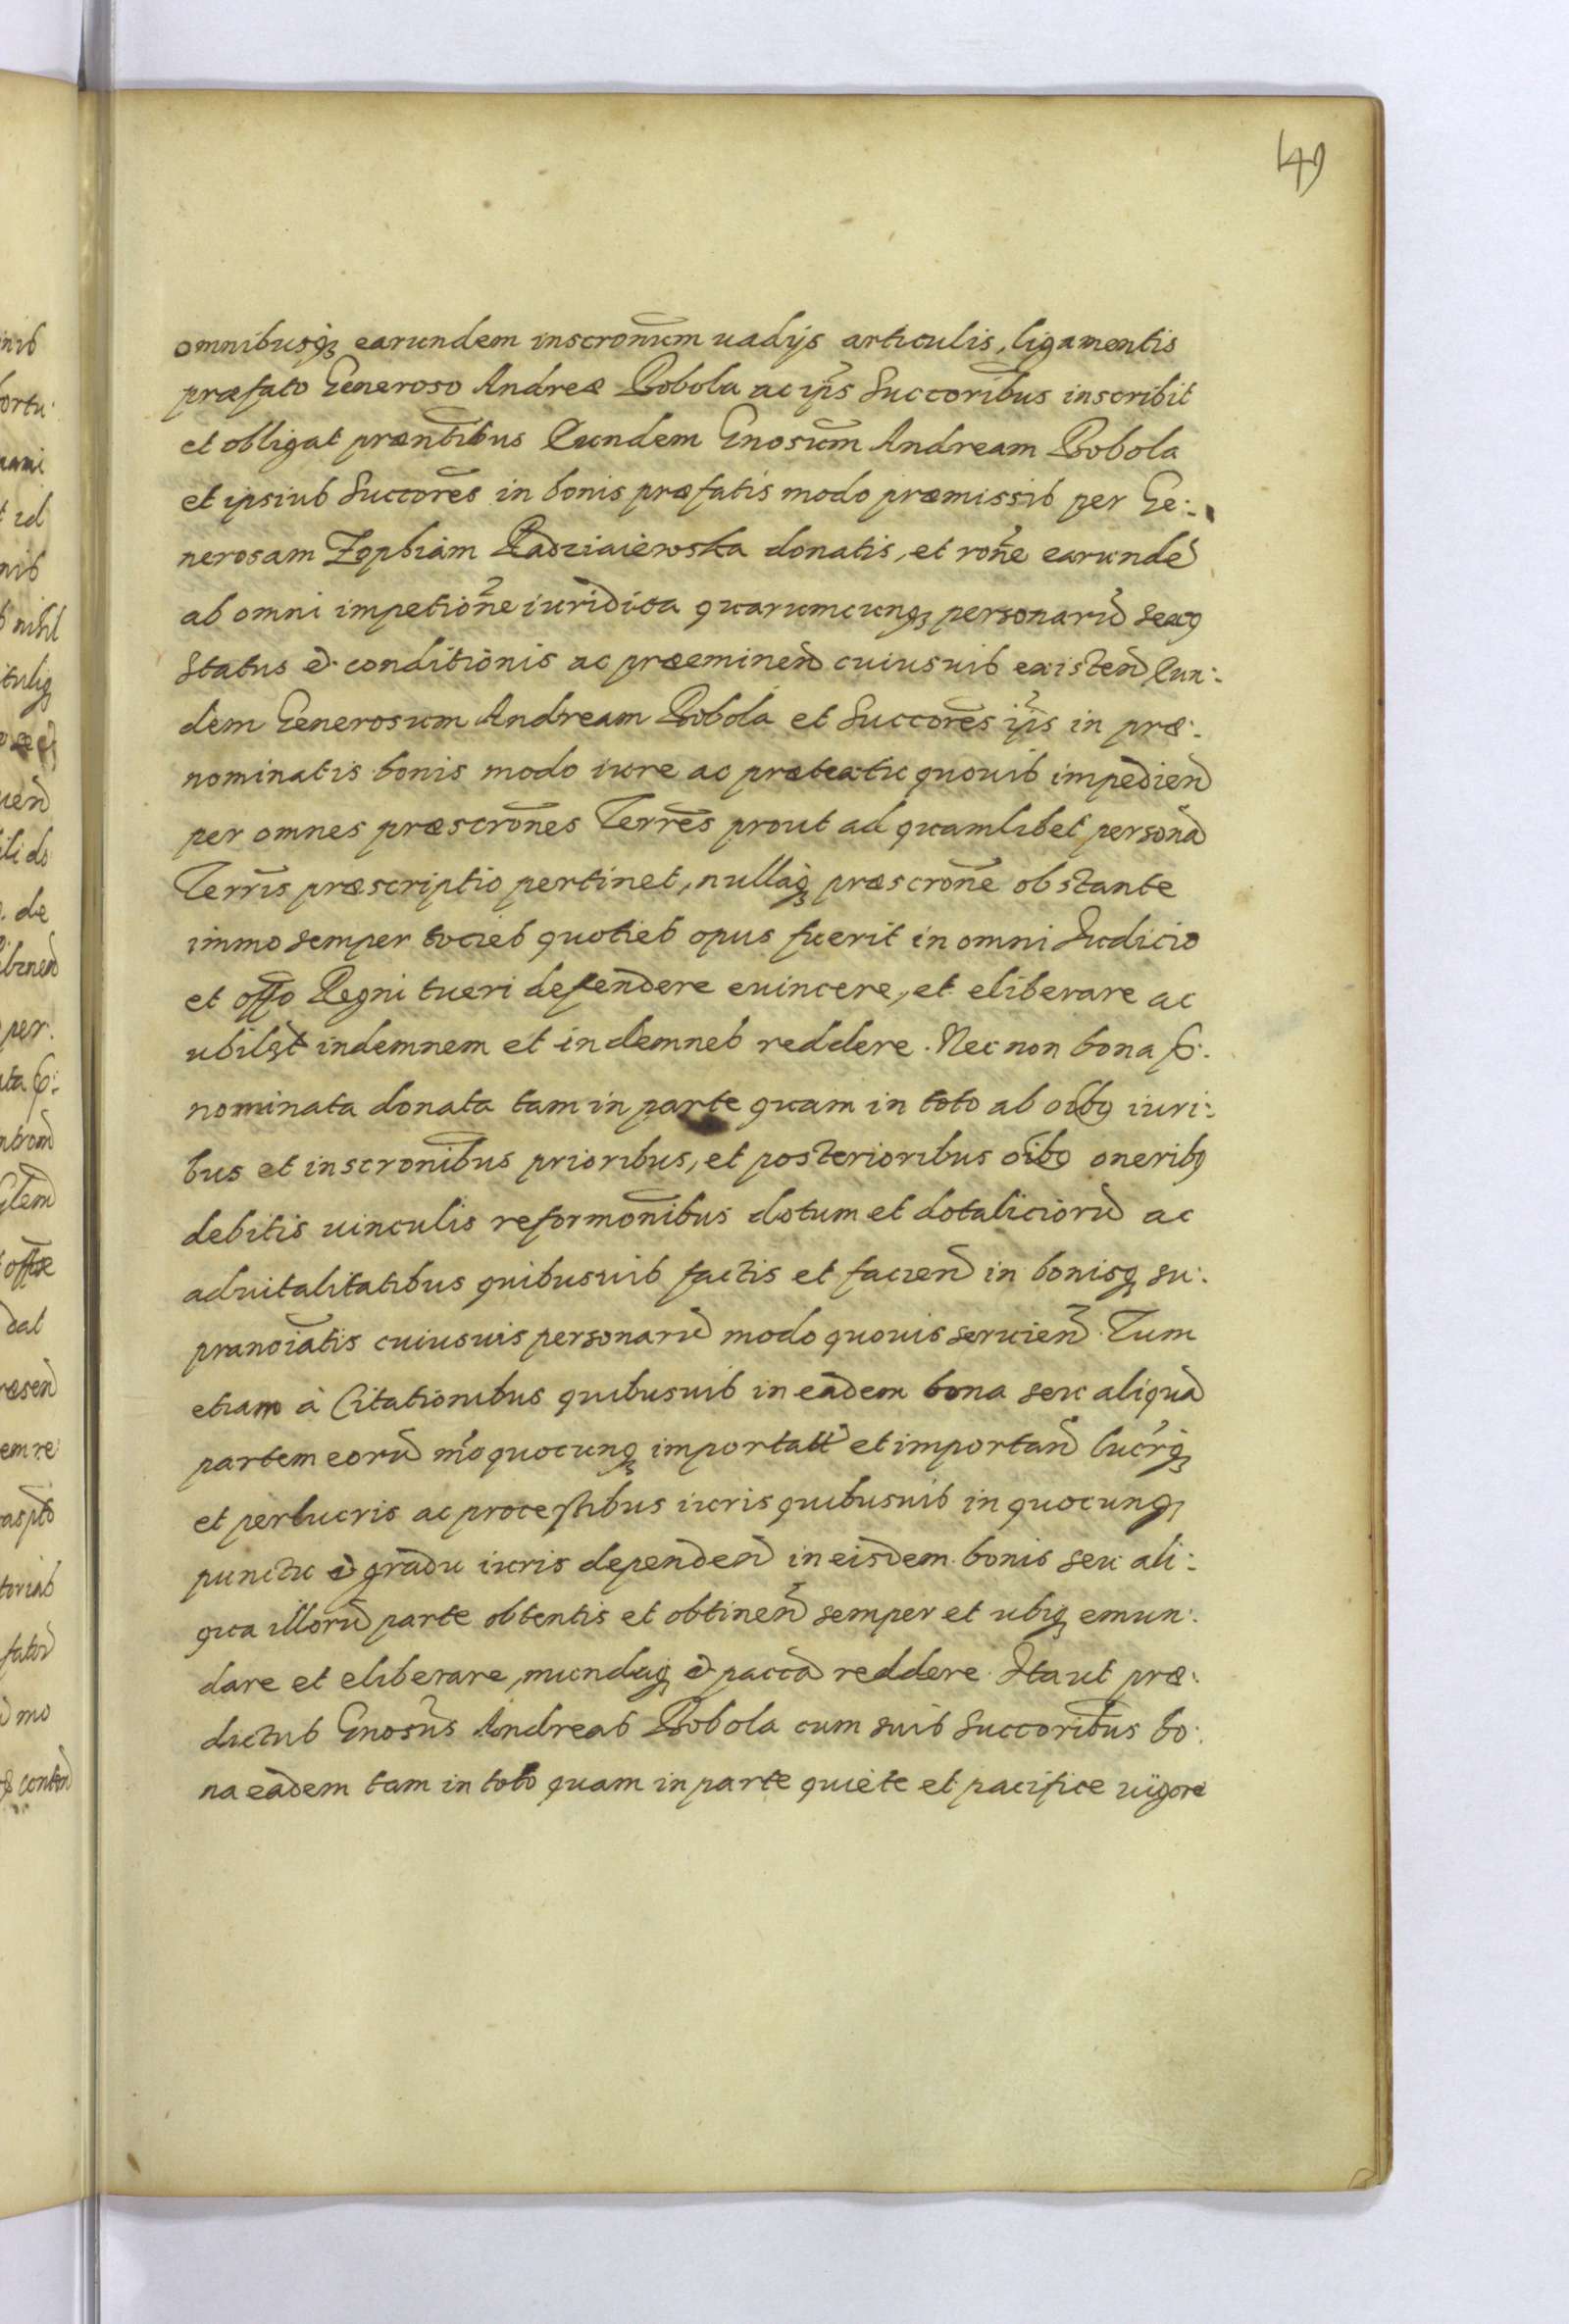 49
omnibusq; earundem inscronum uadijs articulis, ligamentis
præfato Generoso Andreæ Bobola ac ips Succoribus inscribit
et obligat præntibus Eundem Gnosum Andream Bobola
et ipsius Succores in bonis præfatis modo præmissis per Ge:
nerosam Zophiam Radziaiewska donatis, et rone earundē
ab omni impetione iuridica quarumcunq; personarū sexq
status & conditionis ac præeminen cuiusuis existen Eun:
dem Generosum Andream Bobola et Succores ips in præ:
nominatis bonis modo iure ac prætextu quouis impedien
per omnes præscrones Terres prout ad quamlibet personā
Terris præscriptio pertinet, nullaq; præscrone obstante
immo semper tocies quoties opus fuerit in omni Iudicio
et offo Regni tueri defendere euincere, et eliberare ac
ubilqt indemnem et indemnes reddere. Nec non bona p:
nominata donata tam in parte quam in toto ab oibq iuri:
bus et inscronibus prioribus, et posterioribus oibq oneribq
debitis uinculis reformonibus dotum et dotaliciorū ac
aduitalitatibus quibusuis factis et facien in bonisq; su:
pranoiatis cuiusuis personarū modo quouis seruien. Tum
etiam à Citationibus quibusuis in eadem bona seu aliquā
partem eorū mo quocunq; importatt et importan lucrq;
et perlucris ac processibus iuris quibusuis in quocunq;
punctu & gradu iuris dependen in eisdem bonis seu ali:
qua illorū parte obtentis et obtinen semper et ubiq; emun:
dare et eliberare, mundaq; & paccā reddere. Ita ut præ:
dictus Gnosus Andreas Bobola cum suis Succoribus bo:
na eadem tam in toto quam in parte quiete et pacifice uigore